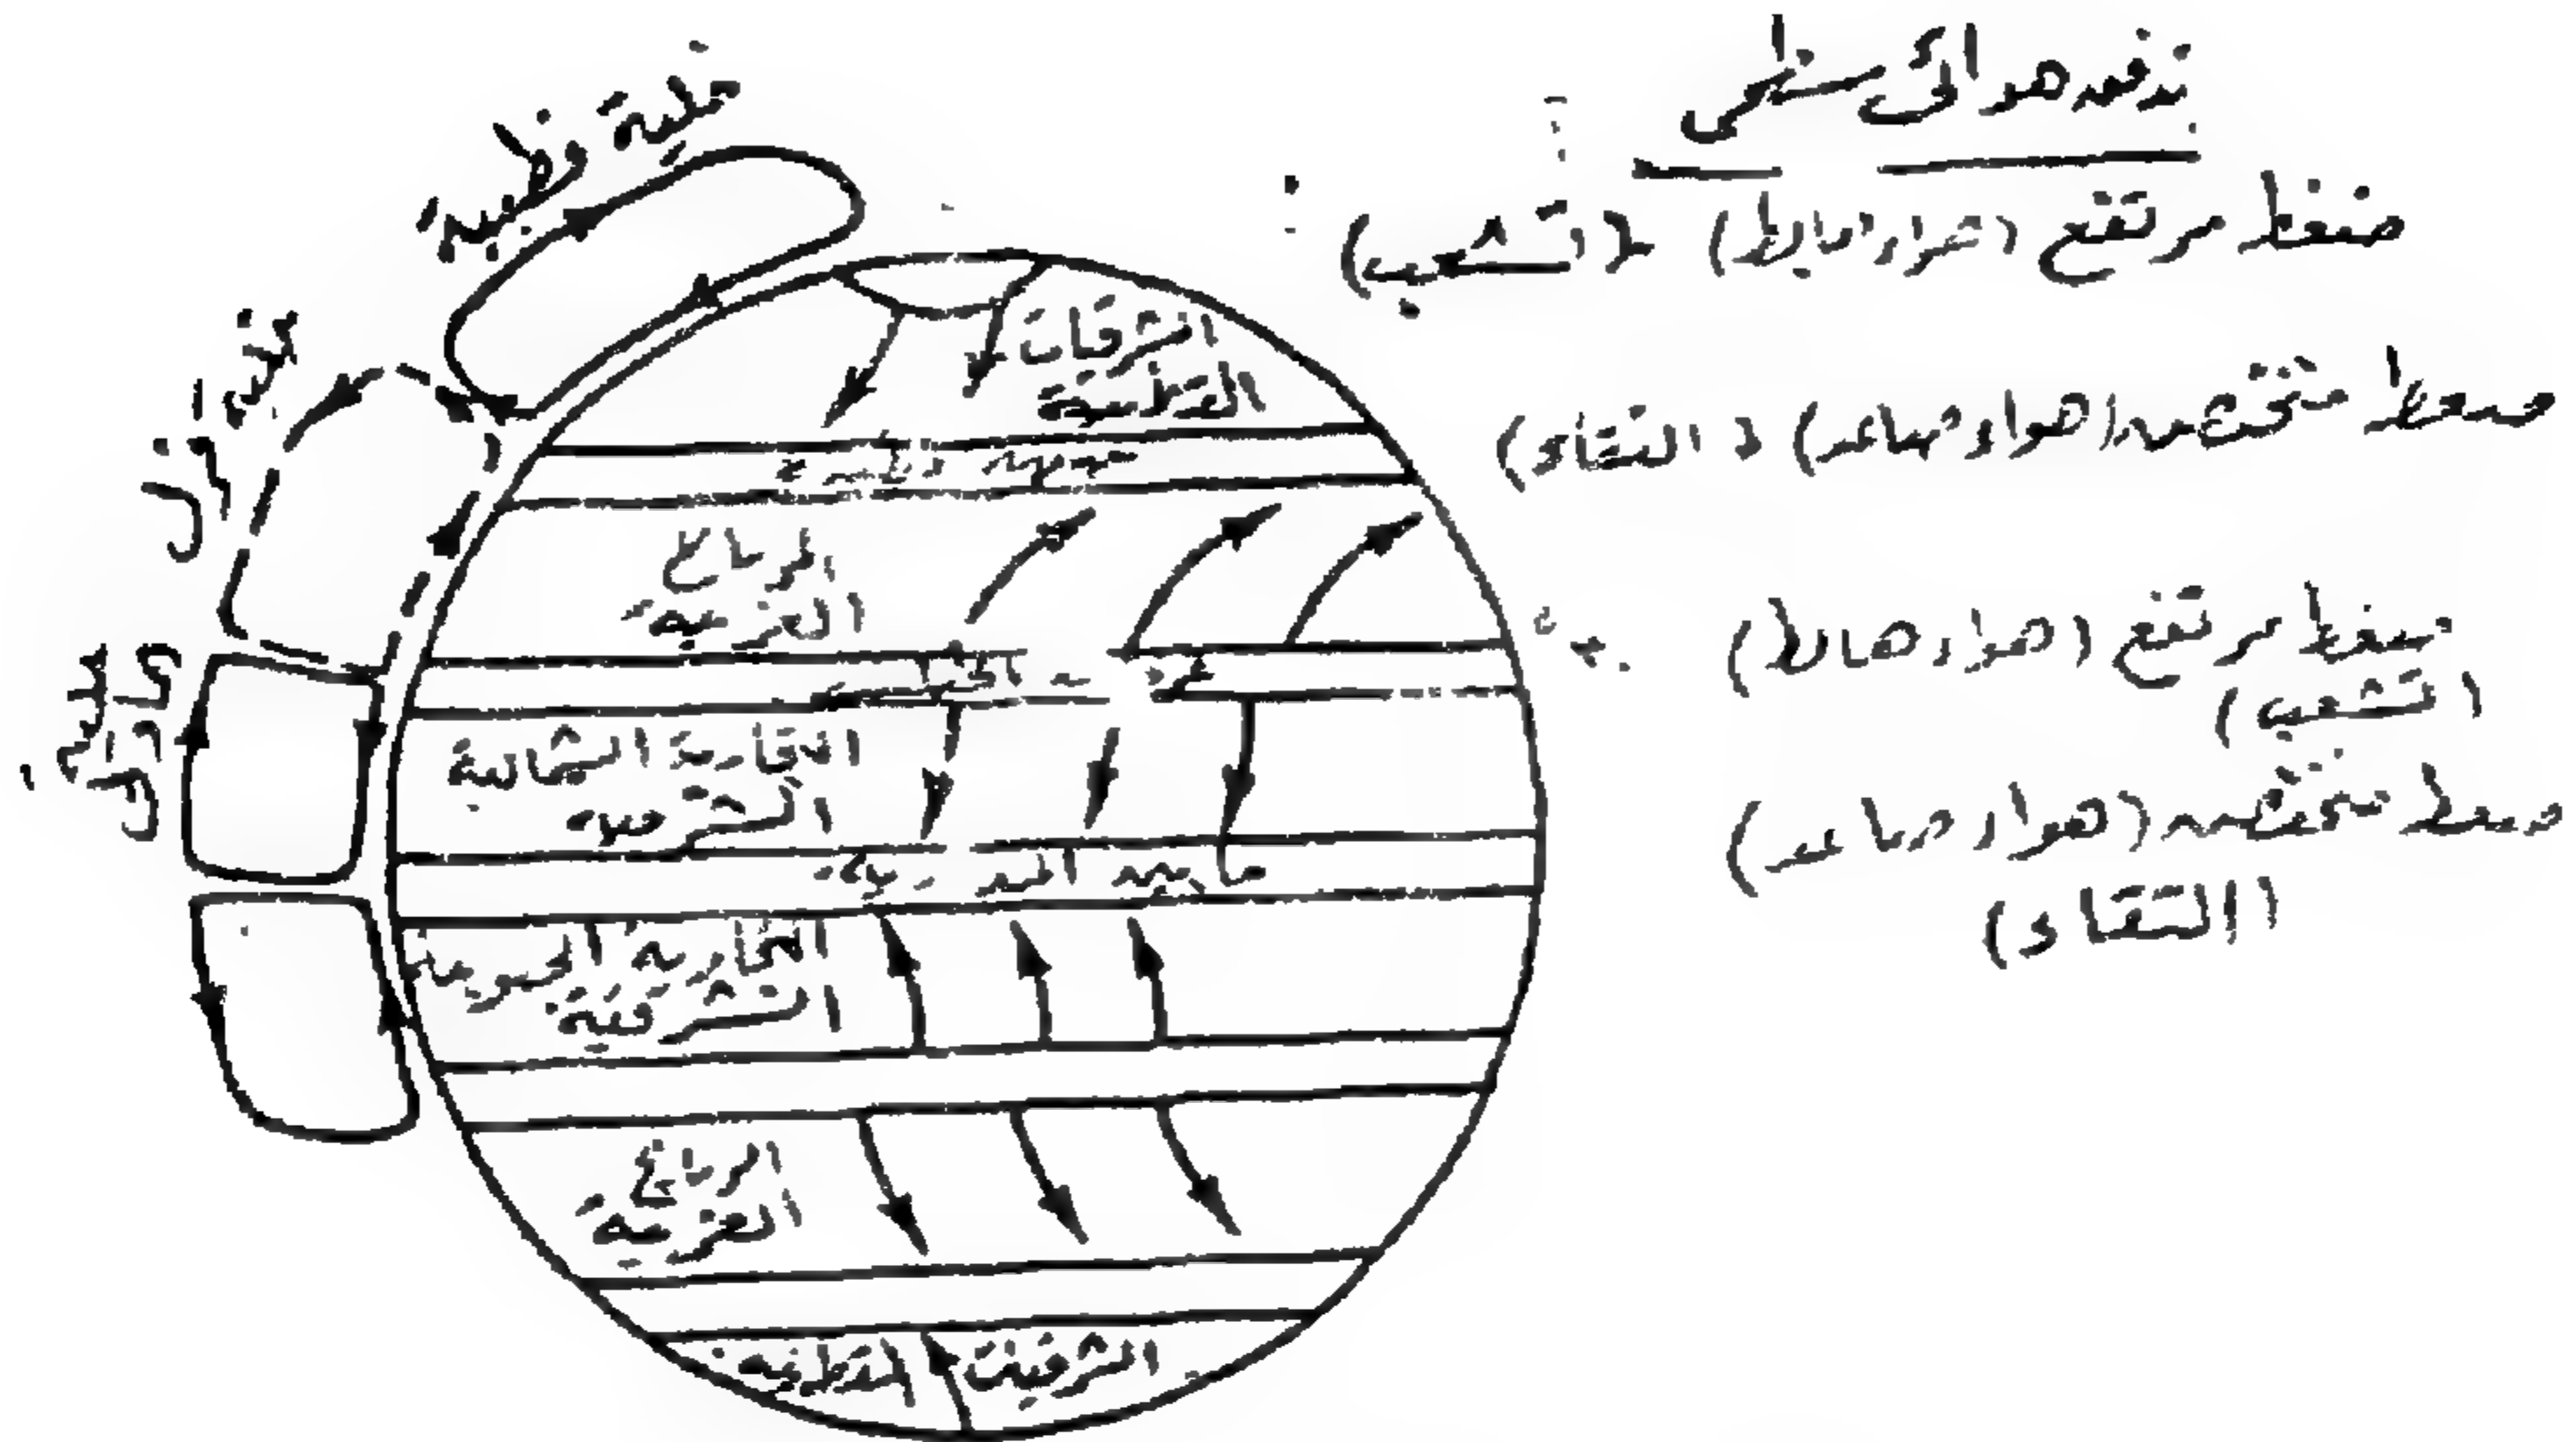 تدفق هوائى سطحى
ضغط مرتفع (هواء هابط) (تشعب)
ضغط منخفض (هواء صاعد) (التقاء)
ضغط مرتفع (هواء هابط)
(تشعب)
ضغط منخفض (هواء صاعد)
(التقاء)
خلية قطبية
خلية
خلية هادلى
الشرقيات
القطبية
جبهة قطبية
الرياح
الغربية
عروض الخيل
التجارية الشمالية
الشرقية
ما بين المدارية
التجارية الجنوبية
الشرقية
الرياح
الغربية
الشرقيات القطبية